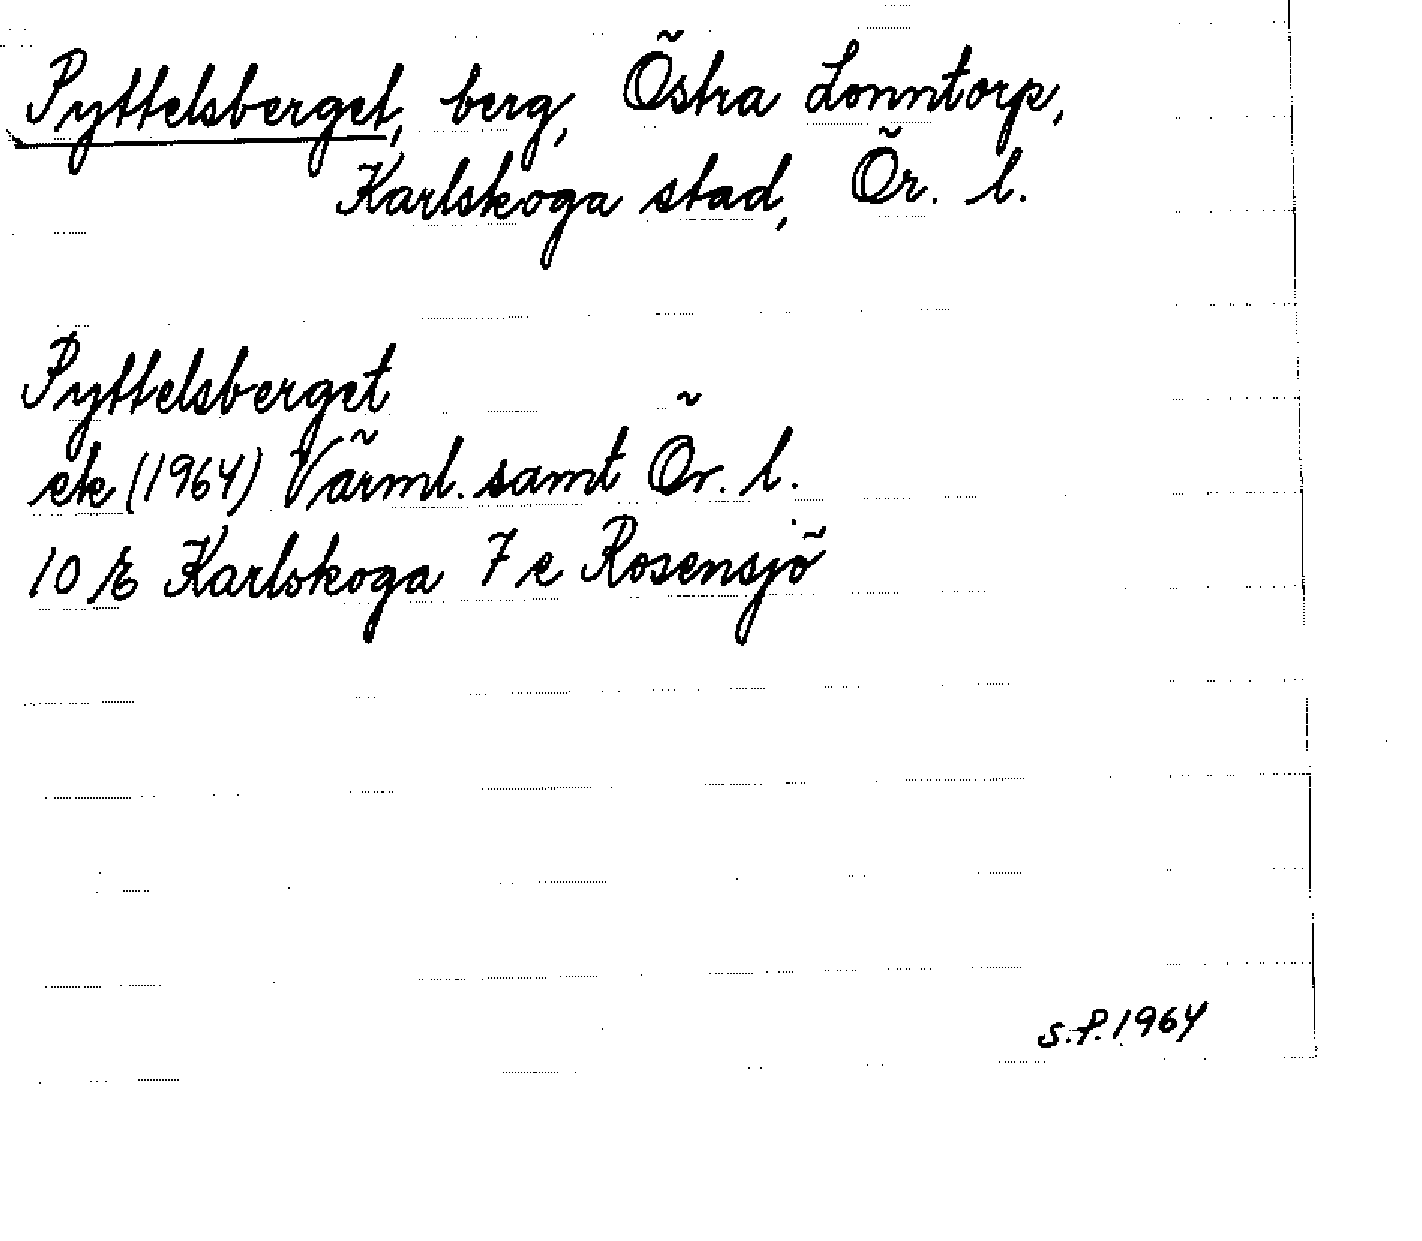 Pyttelsberget, berg, Östra Lonntorp,
Karlskoga stad, Ör. l.
Pyttelsberget
ek (1964) Värml. samt Ör. l.
10 E Karlskoga 7 e Rosensjö
S.F. 1964